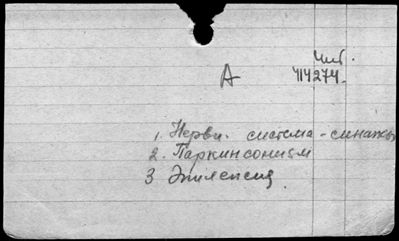 Чит.
А 414274.
1. Нервн. система - синапсы
2. Паркинсонизм
3 Эпилепсия